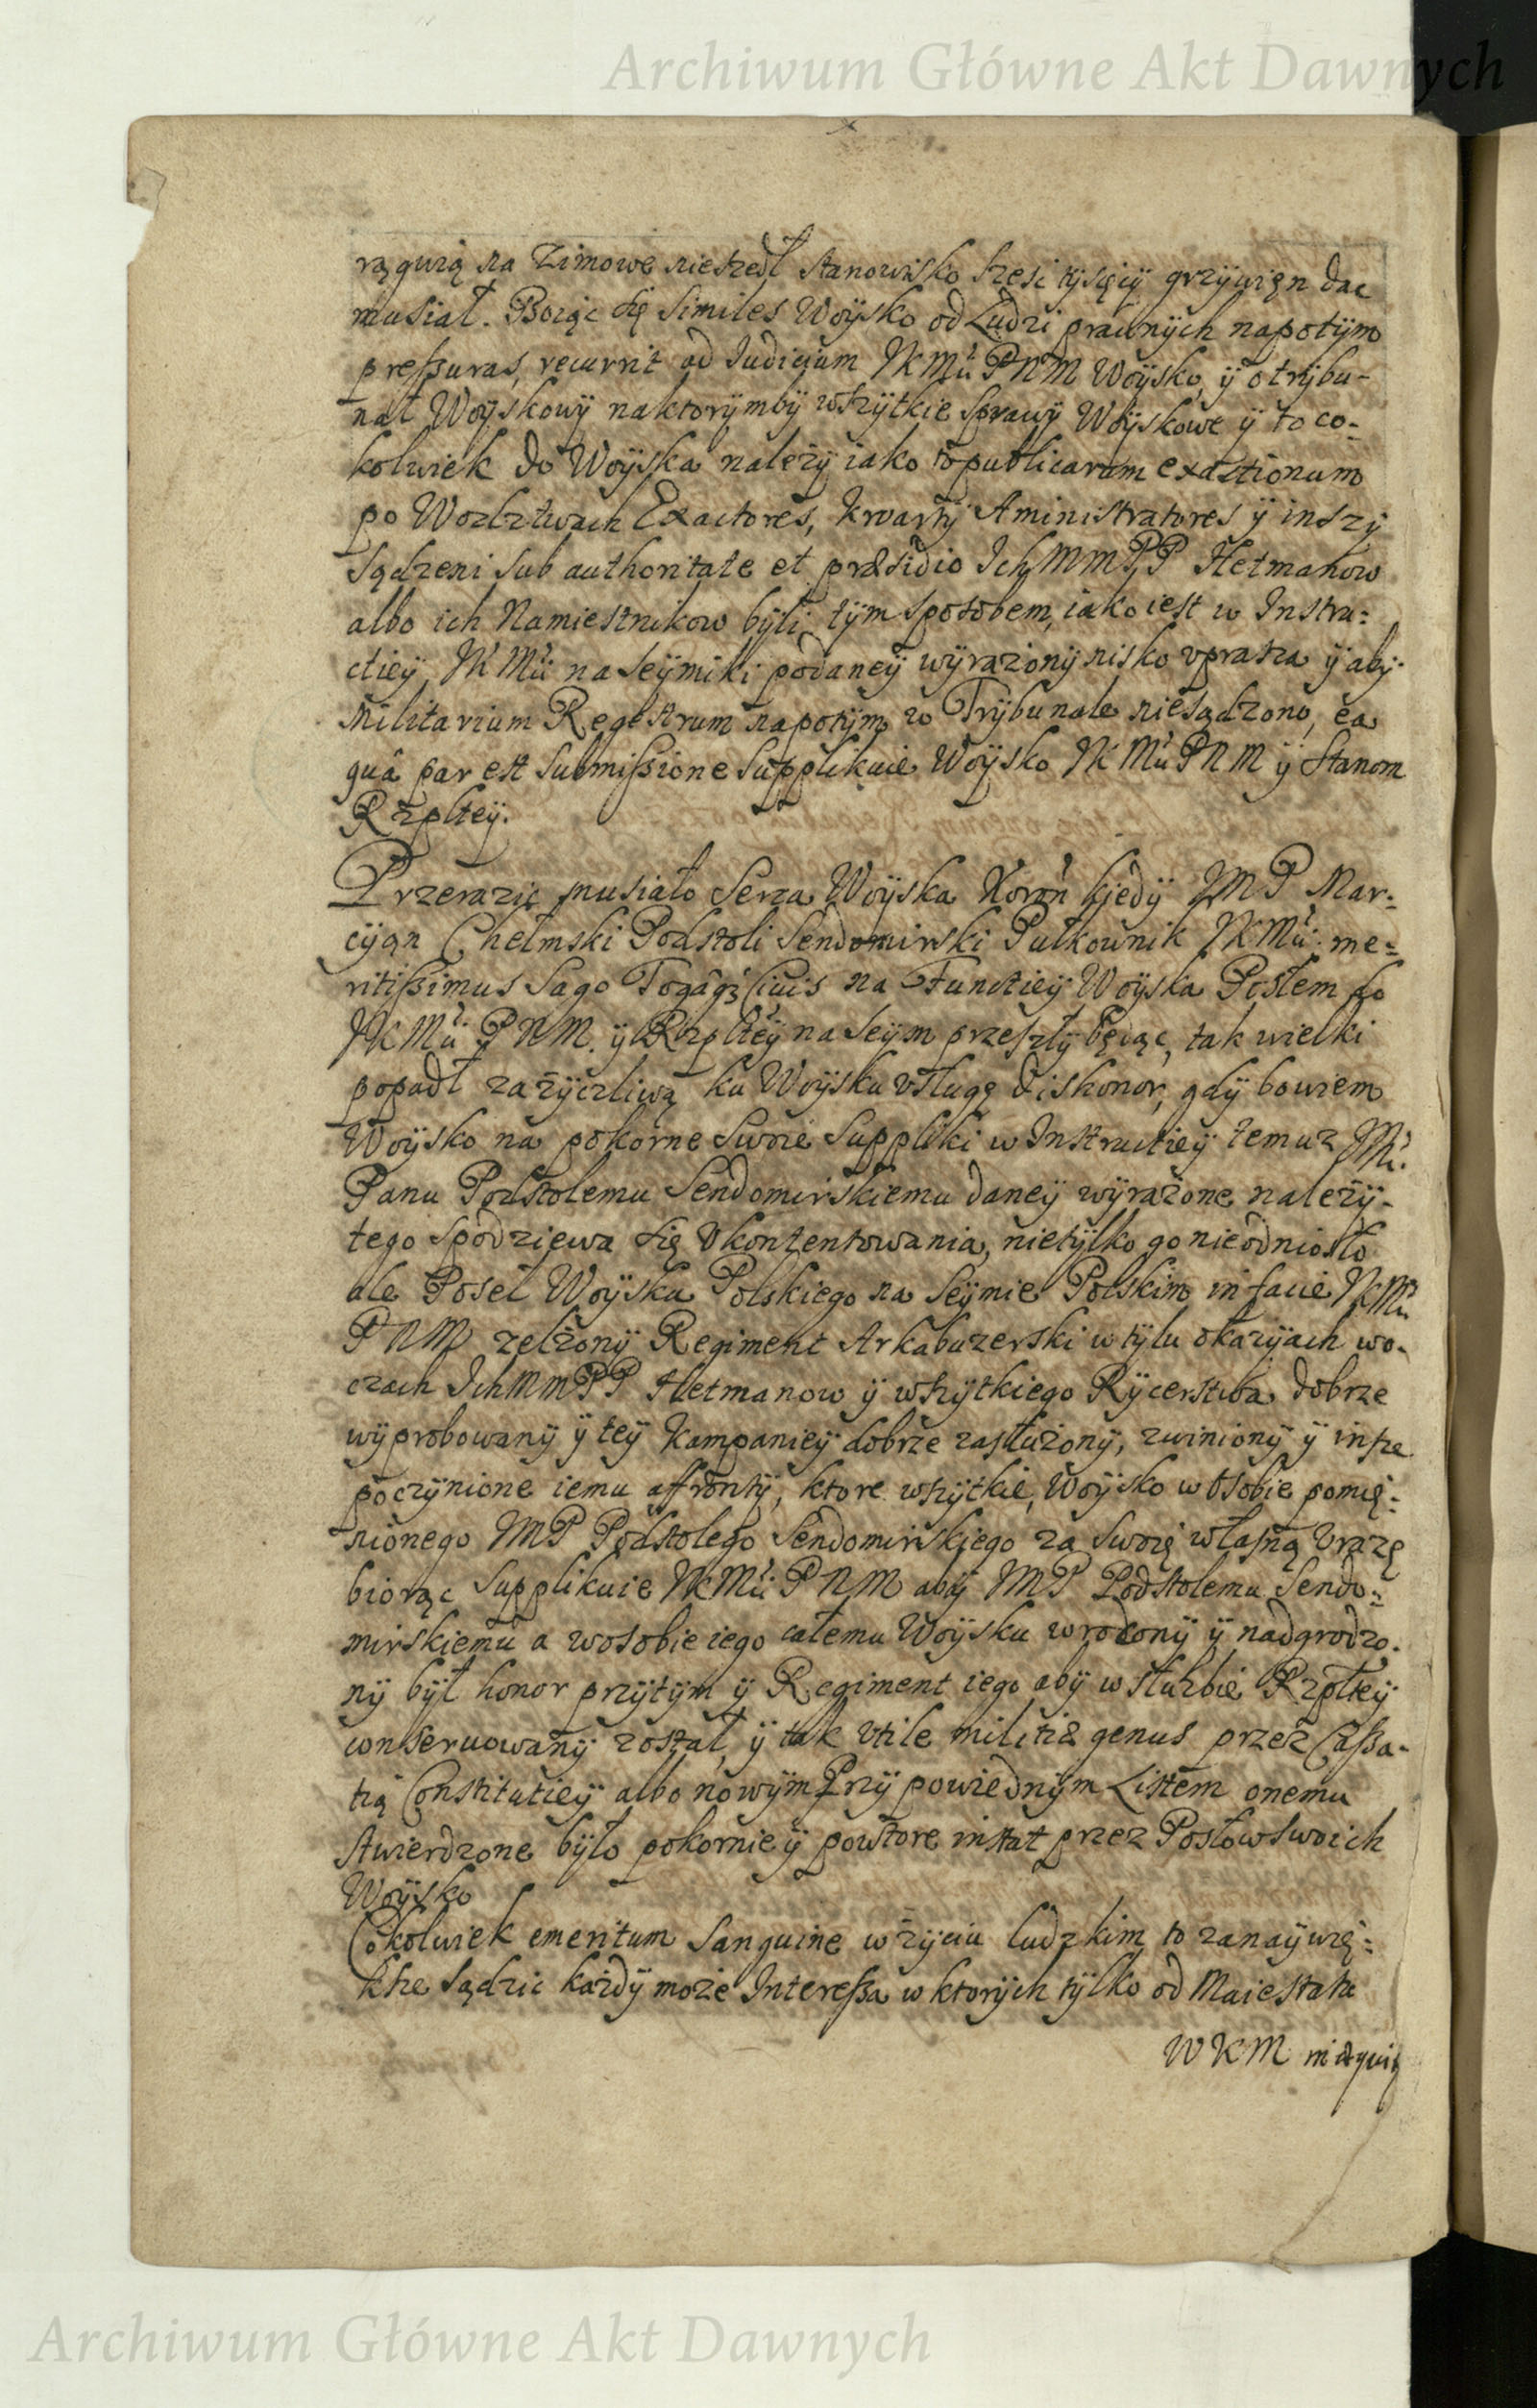 Archiwum Główne Akt Dawnych
rągwią na Zimowe nieszedł stanowisko sześć tysięcÿ grzÿwięn dac
musiał. Boiąc się similes Woÿsko od Ludzi prawnÿch napotÿm
pressuras, recurrit ad Iudicium JKMći PNM Woÿsko, ÿ o trÿbu-
nał Woÿskowÿ naktorÿmbÿ wszÿtkie sprawÿ Woÿskowe ÿ to co-
kolwiek do Woÿska należÿ iako to publicarum exactionum
po Wodztwach Exactores, kwartÿ Aministratores ÿ inszÿ
sądzeni sub authoritate et præsidio IchMmPP Hetmanow
albo ich Namiestnikow bÿli, tÿm sposobem, iako iest w Instru-
ctieÿ JKMći na seÿmiki podaneÿ wÿrazonÿ nisko vprasza ÿ abÿ
Militarium Regestrum napotÿm w Trÿbunale niesądzono, ea
quâ par est submissione supplikuie Woÿsko JKMći PNM ÿ Stanom
Rzpltey.
Przerazic musiało serca Woÿska Koron kiedÿ JMP Mar-
cÿan Chełmski Podstoli Sendomirski Pułkownik JKMći me-
ritissimus Sago Togâq3 Ciuis na Functieÿ Woÿska Posłem do
JKMći PNM ÿ Rzplteÿ na seÿm przeszłÿ będąc, tak wielki
popadł zażÿczliwą ku Woÿsku vsługę dishonor, gdÿ bowiem
Woÿsko na pokorne swoie suppliki w Instructieÿ temuz JMći
Panu Podstolemu Sendomirskiemu daneÿ wÿrażone należÿ-
tego spodziewa się Vkontentowania, nietÿlko go nieodniosło
ale Poseł Woÿska Polskiego na Seÿmie Polskim in facie JKMći
PNM zelżonÿ Regiment Arkabuzerski w tÿlu okazÿach wo-
czach IchMmPP Hetmanow ÿ wszÿtkiego Rÿcerstwa dobrze
wÿprobowanÿ ÿ teÿ kampanieÿ dobrze zasłużonÿ, zwinionÿ ÿ insze
poczÿnione iemu affrontÿ, ktore wszÿtkie, Woÿsko w osobie pomię-
nionego JMP Podstolego Sendomirskiego za swoię własną vrazę
biorąc supplikuie JKMći PNM abÿ JMP Podstolemu Sendo-
mirskiemu a wosobie iego całemu Woÿsku wroconÿ ÿ nadgrodzo-
nÿ bÿł honor przÿtÿm ÿ Regiment iego abÿ w służbie Rzplteÿ
conseruowanÿ został, ÿ tak vtile militiæ genus przez Cassa-
tią Constitutieÿ albo nowÿm Przÿpowiednÿm Listem onemu
stwierdzone bÿło pokornie ÿ powtore instat przez Posłow swoich
Woÿsko
Cokolwiek emeritum sanguine w żÿciu ludzkim to zanaÿwię-
ksze sądzic każdÿ może Interessa w ktorÿch tÿlko od Maiestatu
WKM
Archiwum Główne Akt Dawnych